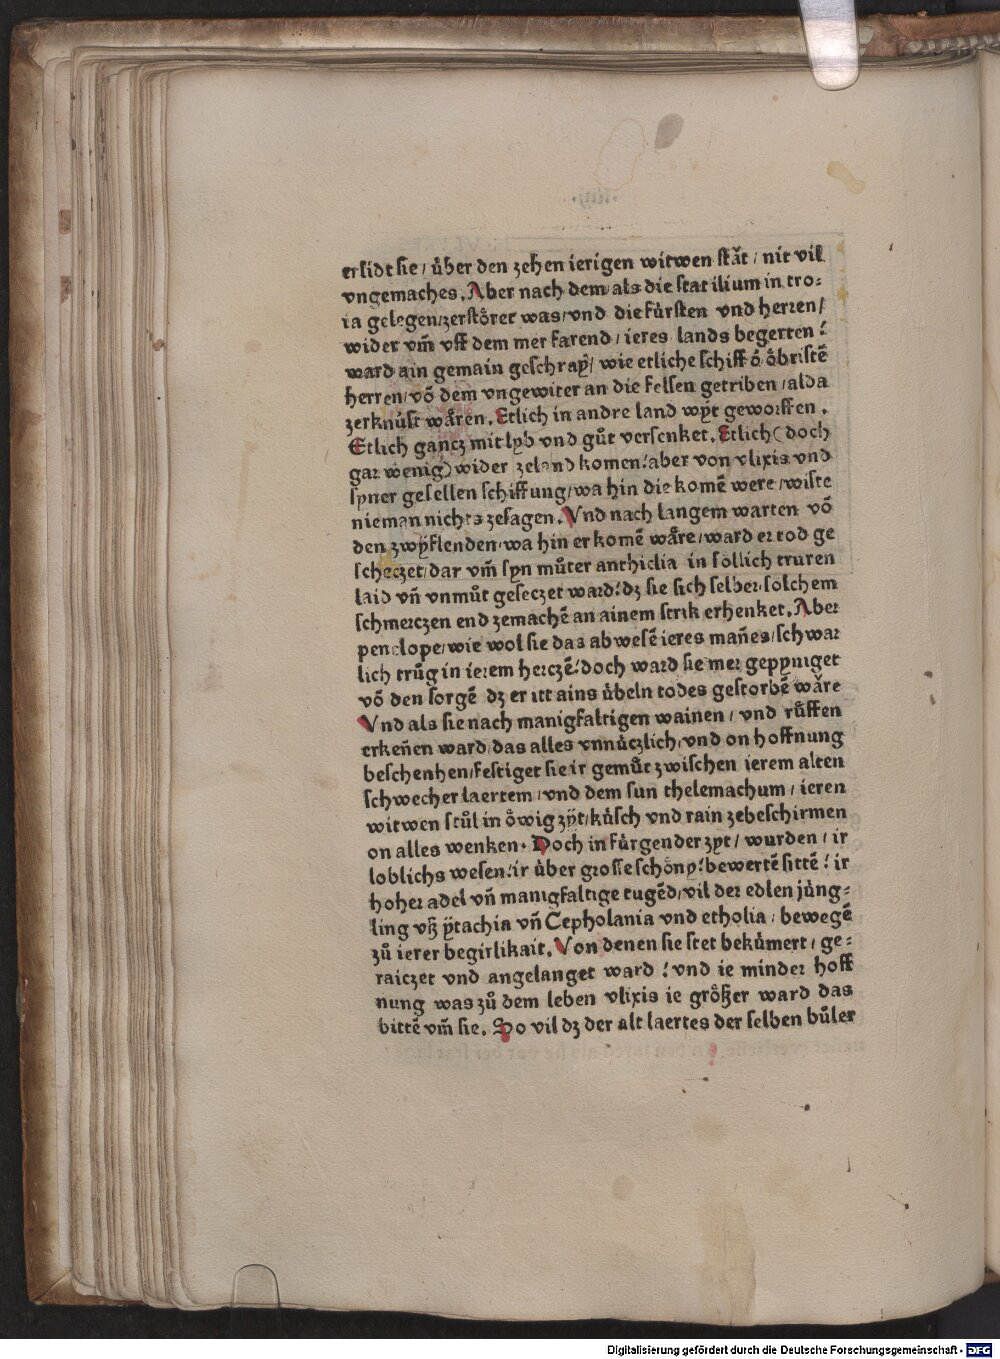 erlidt sie / ůber den zehen ierigen witwen stǎt / nit vil
vngemaches. Aber nach dem / als die stat ilium in tro⸗
ia gelegen / zerstȏret was / vnd die fůrsten vnd herren /
wider vm̃ vff dem mer farend / ieres lands begerten!
ward ain gemain geschray / wie etliche schiff ð ȏbristẽ
herren / võ dem vngewiter an die felsen getriben / alda
zerknúst wǎren. Etlich in andre land wÿt geworffen.
Etlich gancz mit lyb vnd gůt versenket. Etlich (doch
gar wenig) wider zeland komen! aber von vlixis vnd
syner gesellen schiffung / wa hin die komẽ were / wiste
nieman nichts zesagen. Vnd nach langem warten võ
den zwÿflenden / wa hin er komẽ wǎre / ward er tod ge
scheczet / dar vm̃ syn můter anthiclia in sollich truren
laid vñ vnmůt geseczet ward! dz sie sich selber / solchem
schmerczen end zemachẽ an ainem strik erhenket. Aber
penelope / wie wol sie das abwesẽ ieres mañes / schwar
lich trůg in ierem herczẽ! doch ward sie mer gepyniget
võ den sorgẽ dz er itt ains ůbeln todes gestorbẽ wǎre
Vnd als sie nach manigfaltigen wainen / vnd růffen
erkeñen ward / das alles vnnůczlich / vnd on hoffnung
beschenhen / festiget sie ir gemůt zwischen ierem alten
schwecher laertem / vnd dem sun thelemachum / ieren
witwen stůl in ȏwig zÿt / kůsch vnd rain zebeschirmen
on alles wenken. Doch in fůrgender zyt / wurden / ir
loblichs wesen! ir ůber grosse schȏny! bewertẽ sittẽ! ir
hoher adel vñ manigfaltige tugẽd / vil der edlen jůng⸗
ling vß ÿtachia vñ Cepholania vnd etholia / bewegẽ
zů ierer begirlikait. Von denen sie stet bekůmert / ge⸗
raiczet vnd angelanget ward! vnd ie minder hoff
nung was zů dem leben vlixis ie grȏßer ward das
bittẽ vm̃ sie. So vil dz der alt laertes der selben bůler
Digitalisierung gefördert durch die Deutsche Forschungsgemeinschaft - DFG